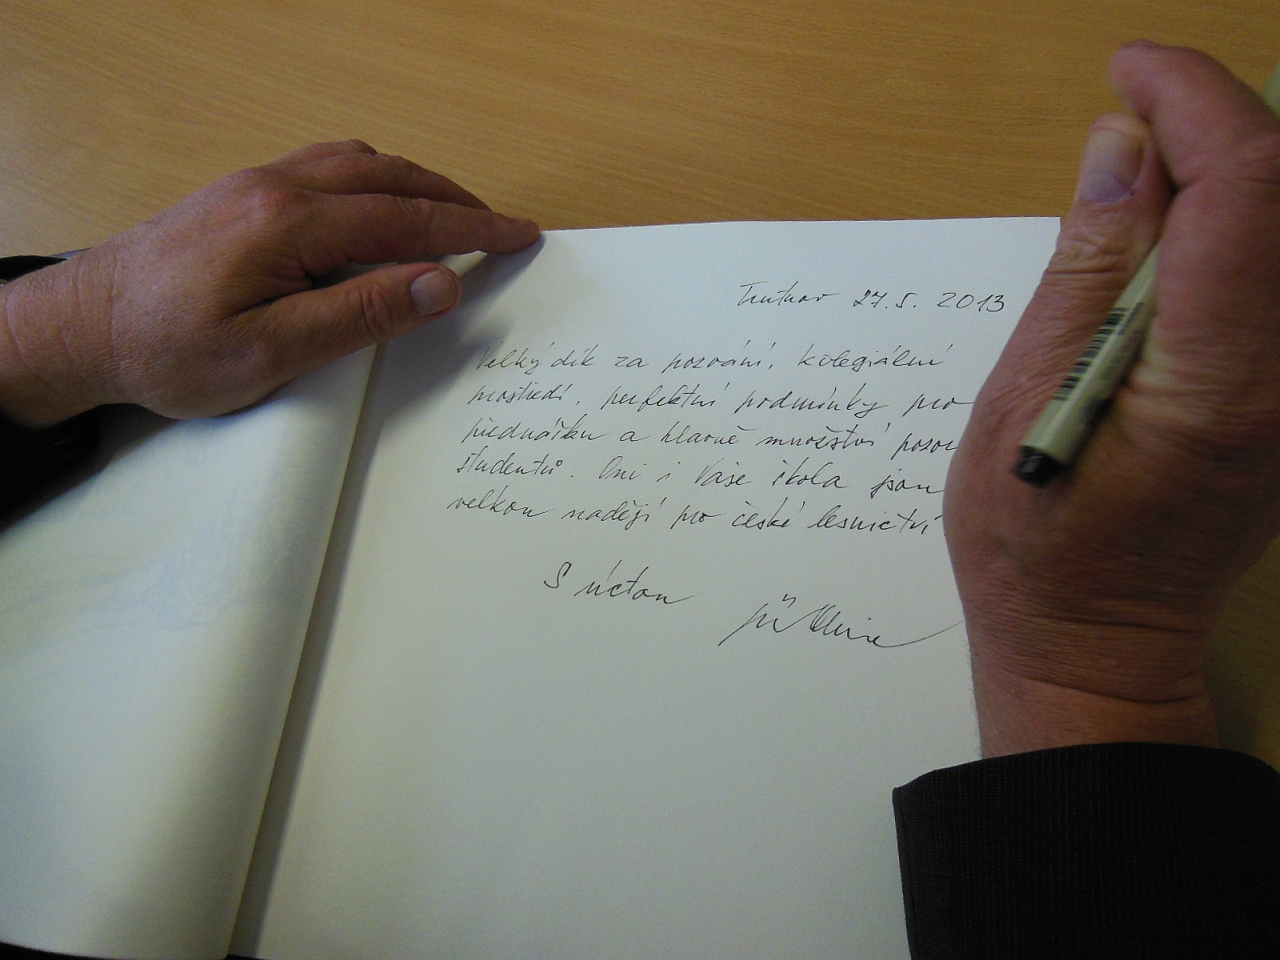 Trutnov 27.5. 2013
Velký dík za pozvání, kolegiální
prostředí, perfektní podmínky pro
přednášku a hlavně množství pozor
studentů. Oni i Vaše škola jsou
velkou nadějí pro české lesnictví
S úctou
Jiří